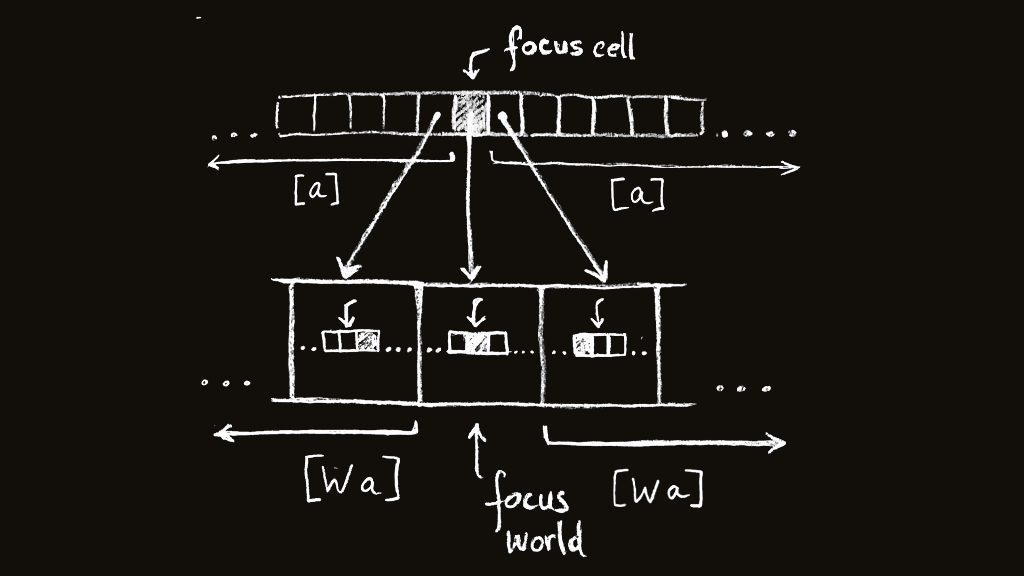 focus cell
[a] [a]
[Wa] [Wa]
focus
world